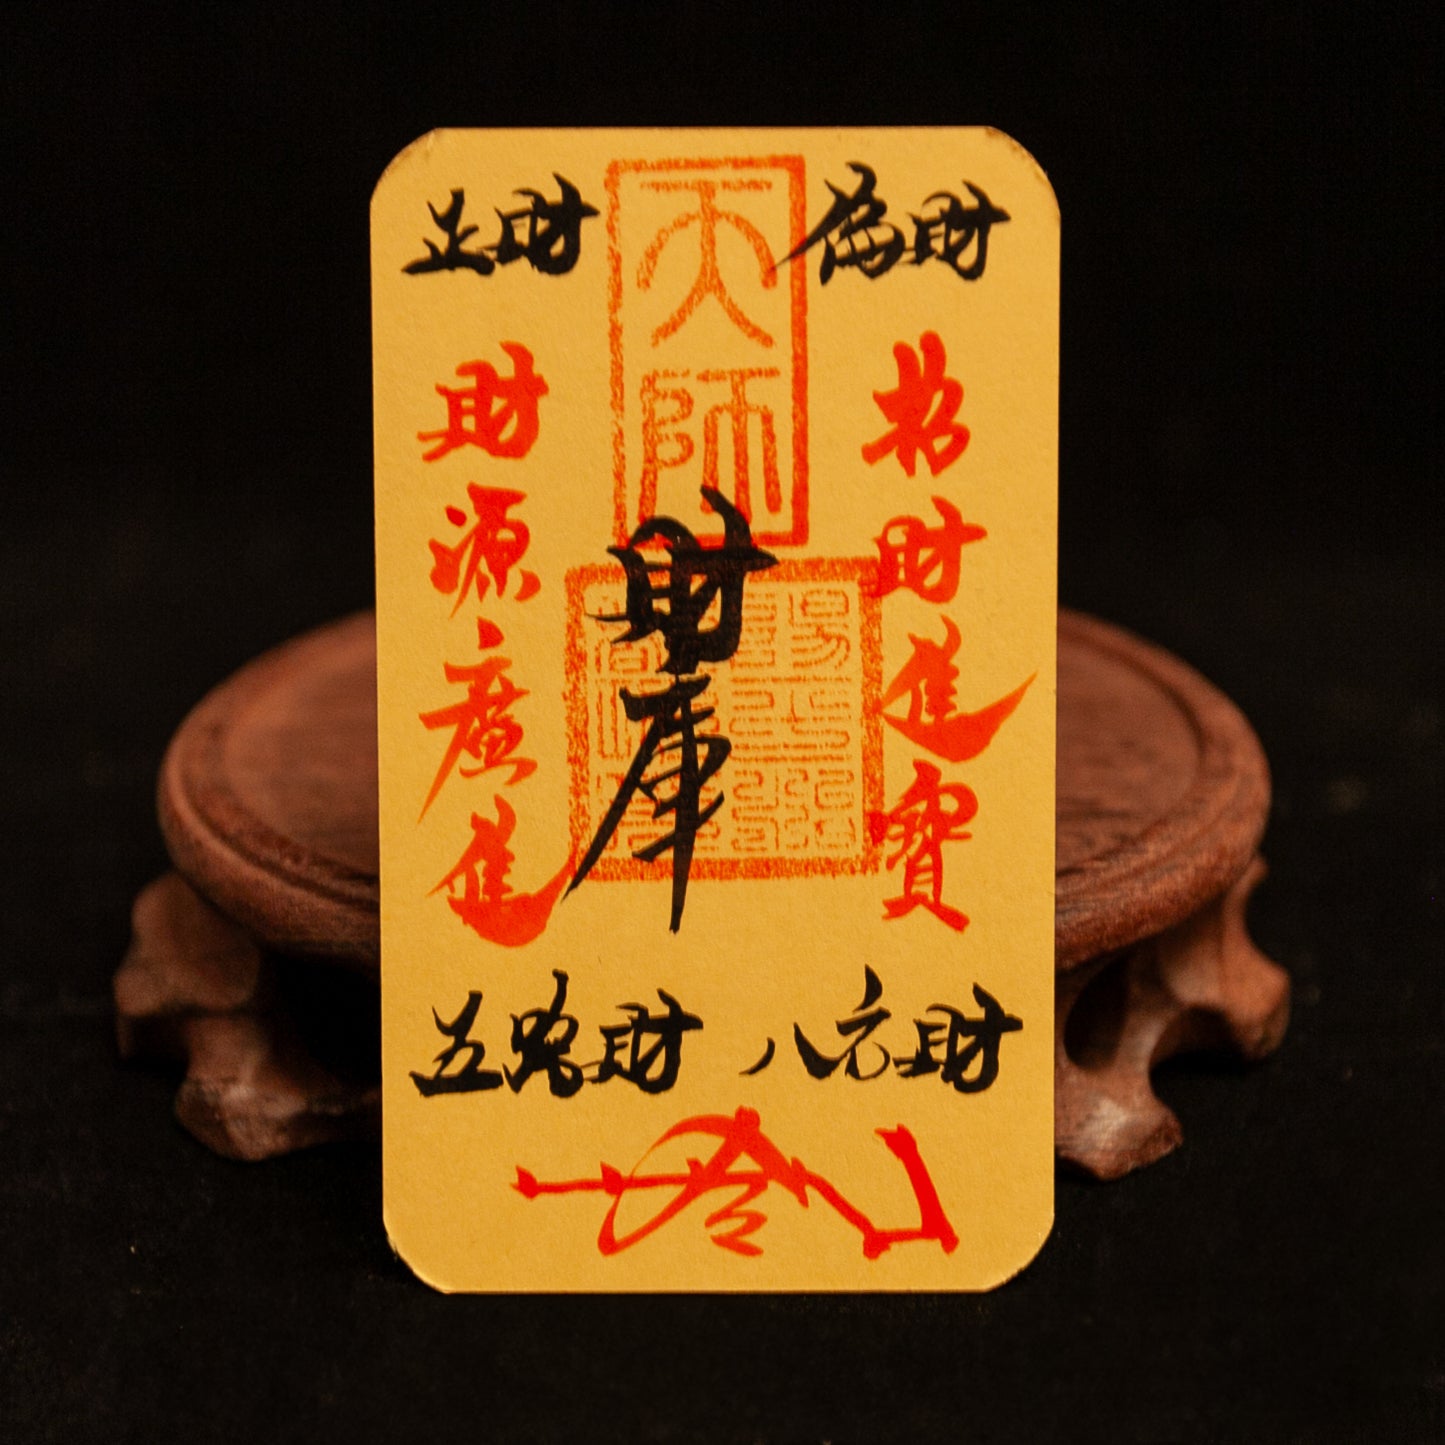 正財
偏財
天師
招財進寶
財源廣進
財庫
五路財
八方財